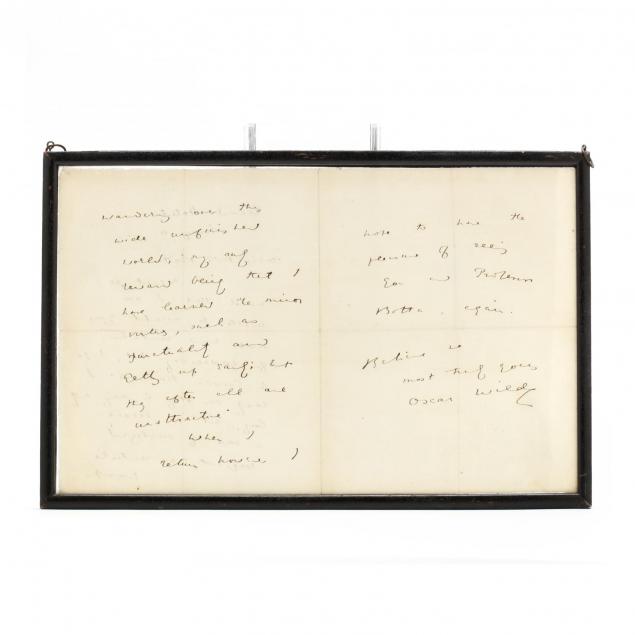 wandering over this
wide unfinished
world, my only
reward being that I
have learned the minor
virtues, such as
punctuality and
getting up early: but
they after all are
unattractive.
When I
return however I
hope to have the
pleasure of seeing
you and Professor
Botta, again.
Believe me
most truly yours
Oscar Wilde